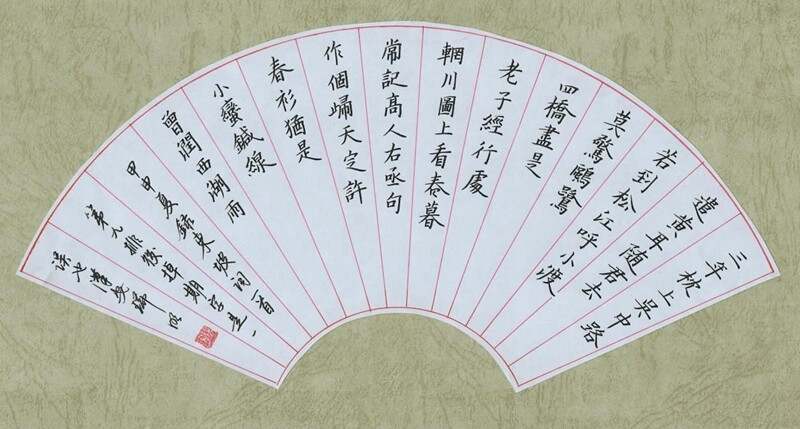 三年枕上吳中路
遣黃耳隨君去
若到松江呼小渡
莫驚鷗鷺
四橋盡是
老子經行處
輞川圖上看春暮
常記高人右丞句
作個歸天定許
春衫猶是
小蠻鍼線
曾潤西湖雨
甲申夏錄東坡詞一首
第九排後掉期字是一
誤也